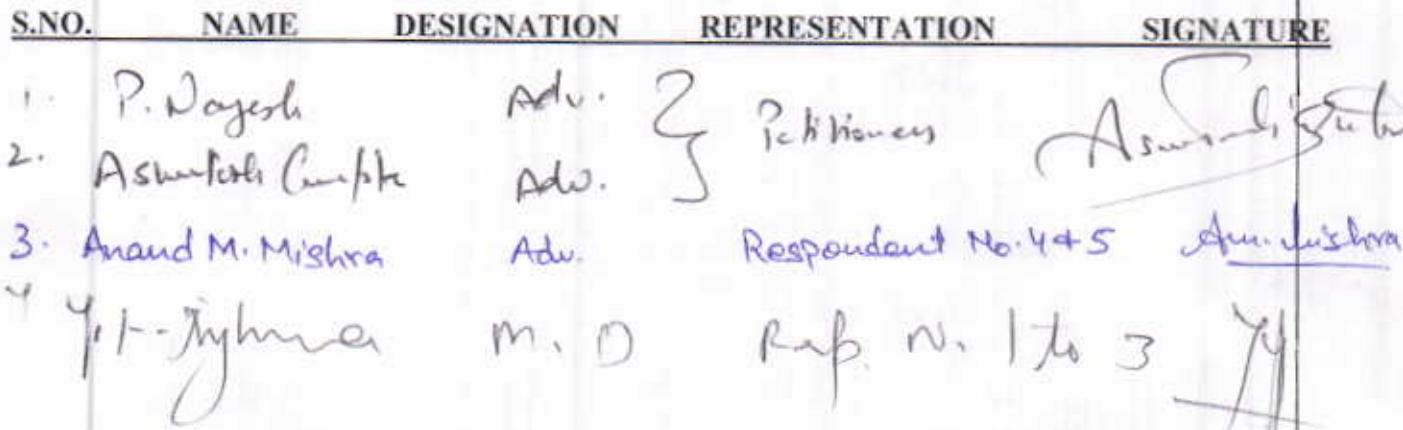 S.NO. NAME DESIGNATION REPRESENTATION SIGNATURE
1. P. Nagesh Adv. Petitioners
2. Ashutosh Gupta Adv.
3. Anand M. Mishra Adv. Respondent No. 4 & 5 Am. Mishra
4 M. D Resp. N. 1 to 3